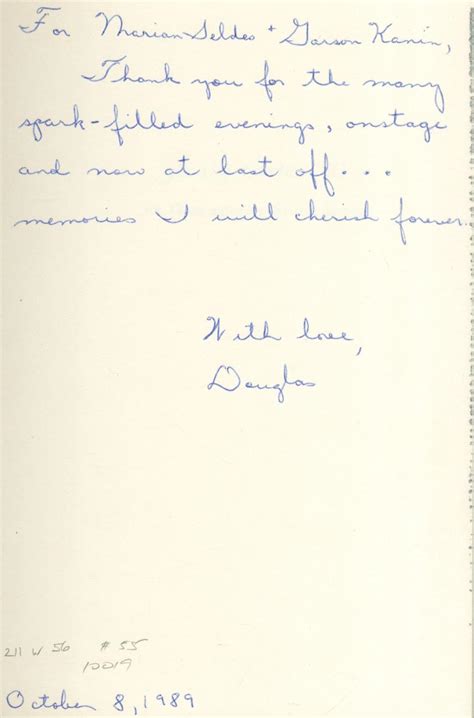 For Marian Seldes + Garson Kanin,
Thank you for the many
spark-filled evenings, onstage
and now at last off...
memories I will cherish forever.
With love,
Douglas
211 W 56 #55
10019
October 8, 1989